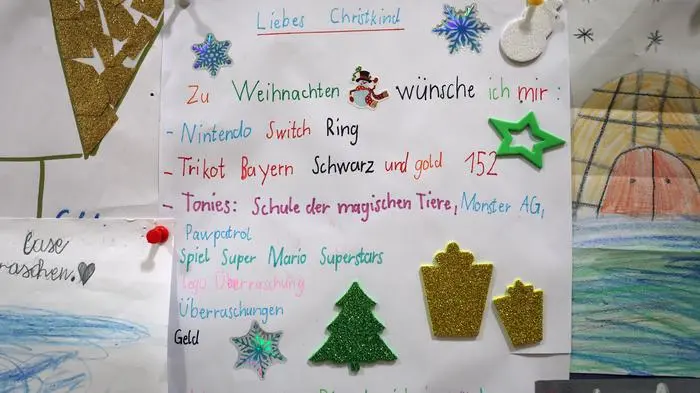 Liebes Christkind
Zu Weihnachten wünsche ich mir:
- Nintendo Switch Ring
- Trikot Bayern Schwarz und gold 152
- Tonies: Schule der magischen Tiere, Monster AG,
Pawpatrol
Spiel Super Mario Superstars
Lego Überraschung
Überraschungen
Geld